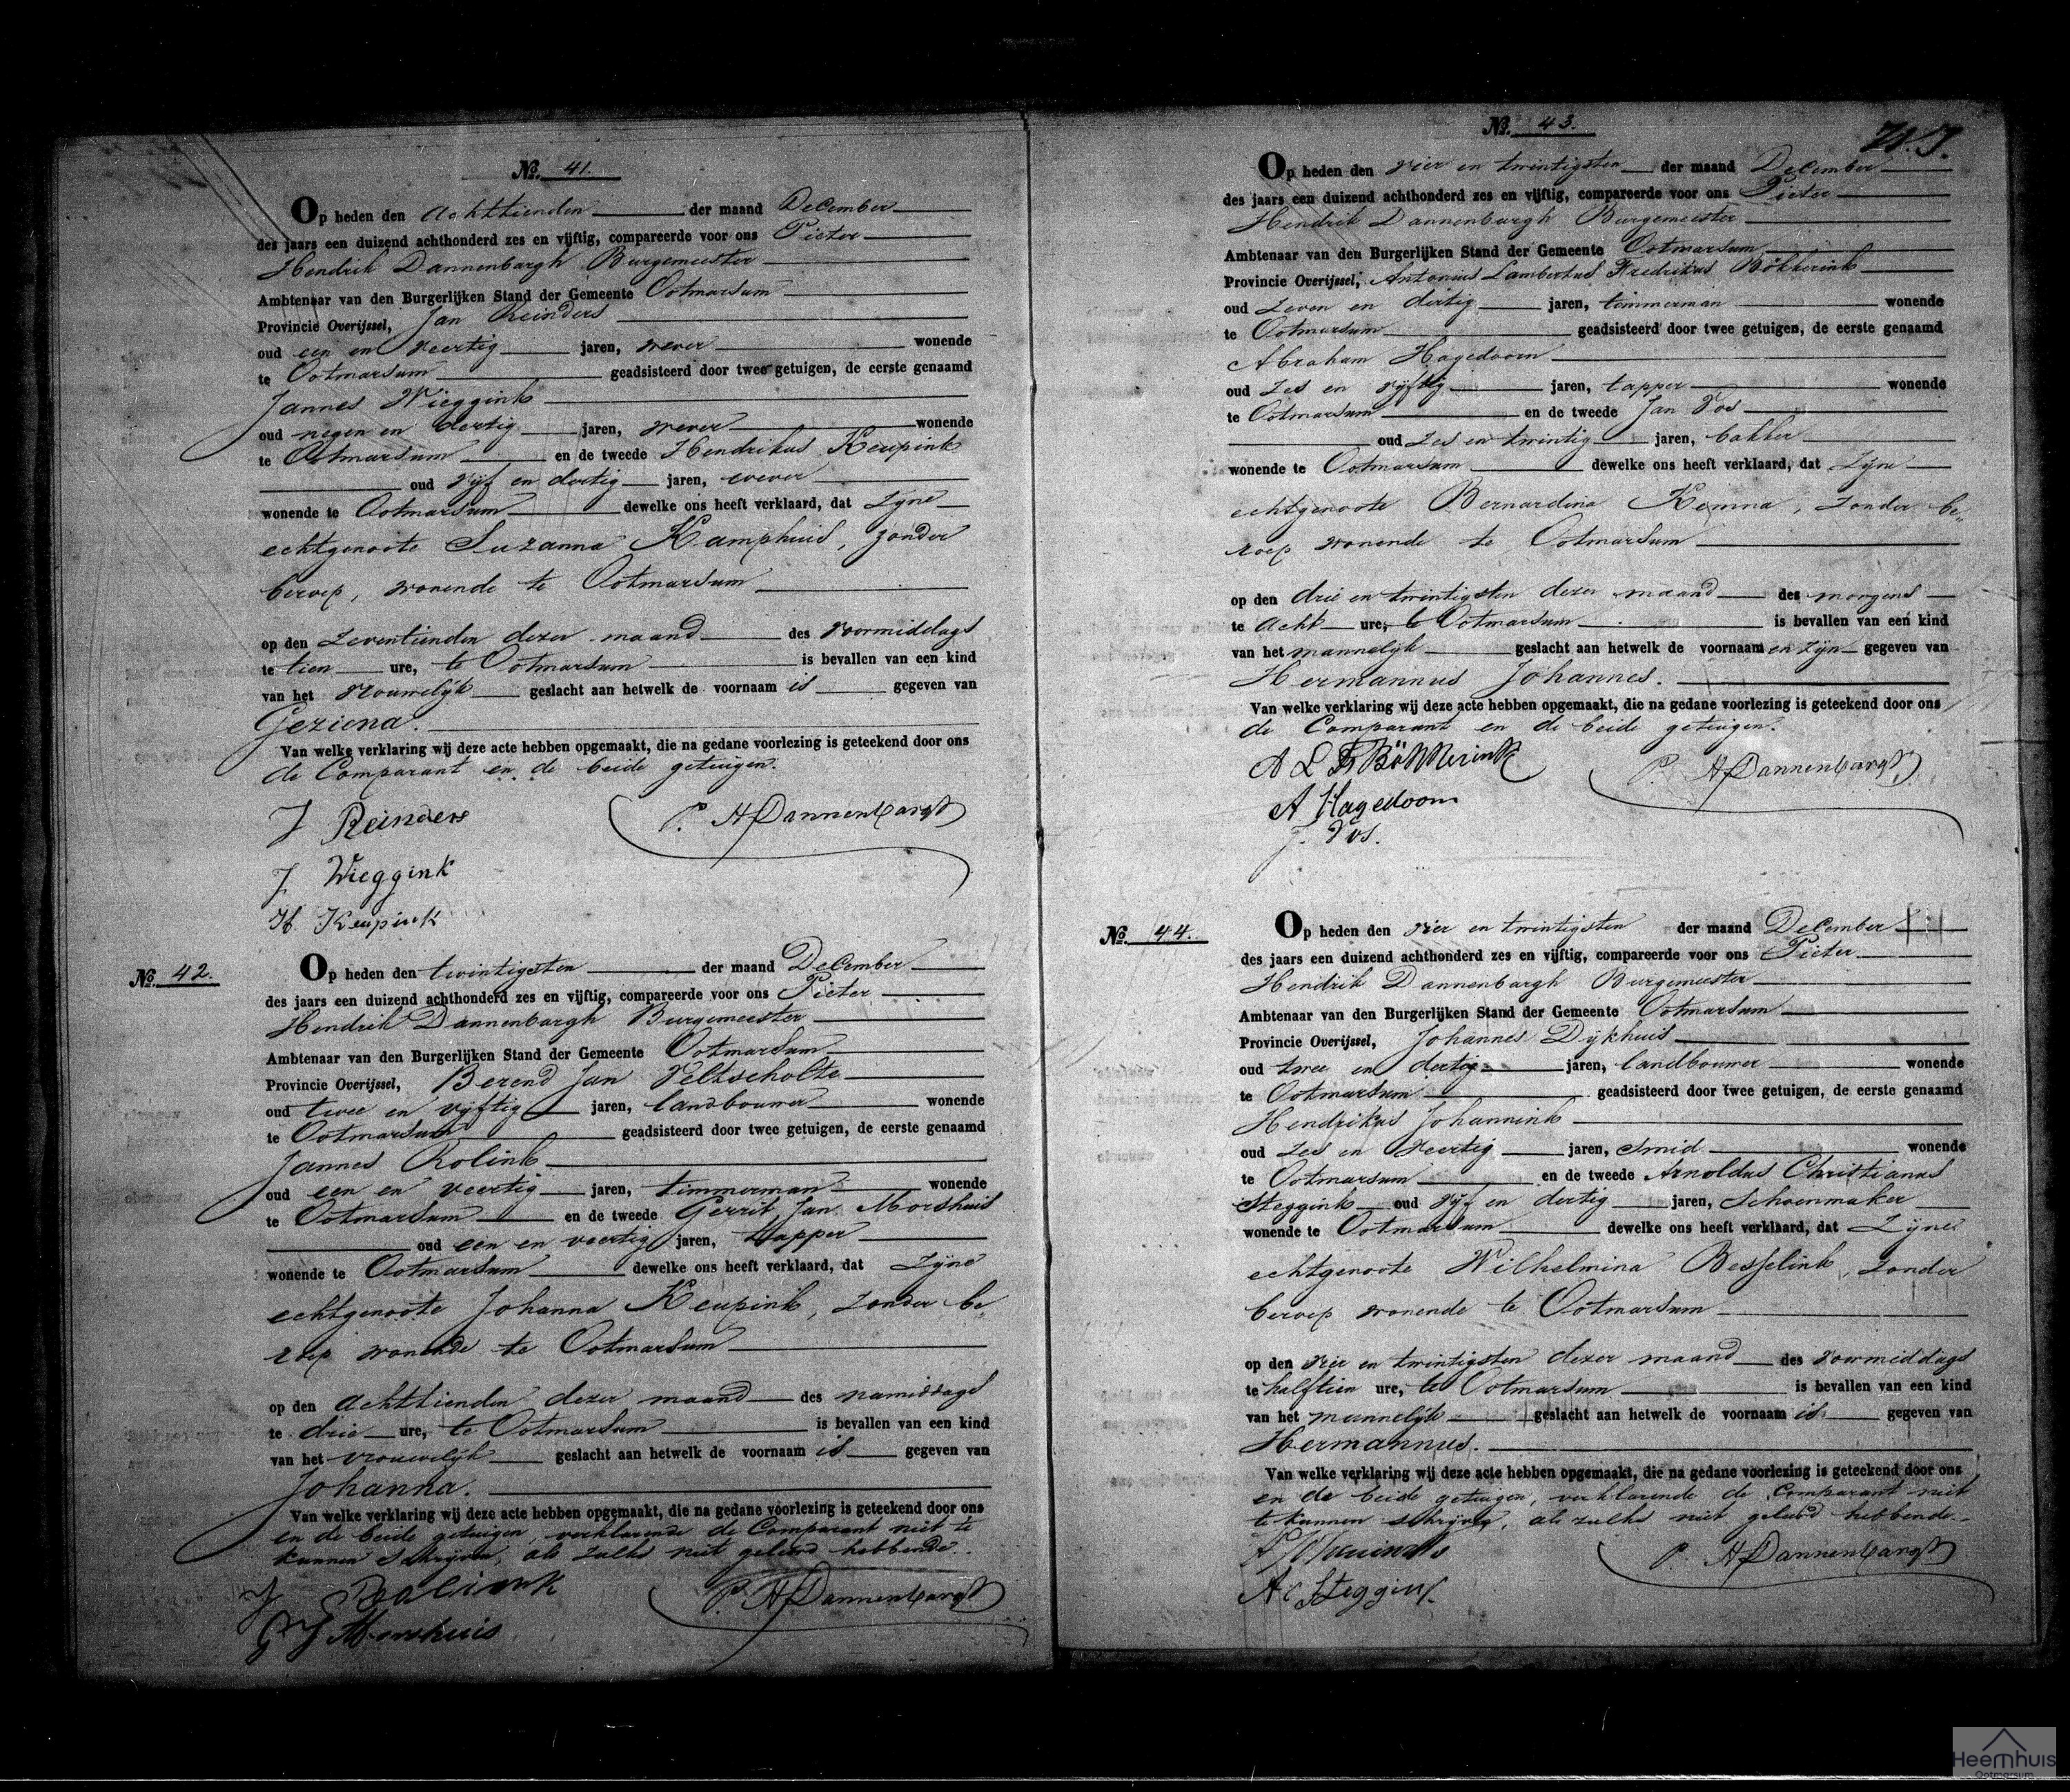 No. 41.
Op heden den Achttienden der maand December
des jaars een duizend achthonderd zes en vijftig, compareerde voor ons Pieter
Hendrik Dannenbargh Burgemeester
Ambtenaar van den Burgerlijken Stand der Gemeente Ootmarsum
Provincie Overijssel, Jan Reinders
oud een en veertig jaren, wever wonende
te Ootmarsum geadsisteerd door twee getuigen, de eerste genaamd
Jannes Wieggink
oud negen en dertig jaren, wever wonende
te Ootmarsum en de tweede Hendrikus Keupink
oud vijf en dertig jaren, wever
wonende te Ootmarsum dewelke ons heeft verklaard, dat Zijne
echtgenoote Suzanna Kamphuis, zonder
beroep, wonende te Ootmarsum
op den Zeventienden dezer maand des voormiddags
te tien ure, te Ootmarsum is bevallen van een kind
van het vrouwelijk geslacht aan hetwelk de voornaam is gegeven van
Geziena.
Van welke verklaring wij deze acte hebben opgemaakt, die na gedane voorlezing is geteekend door ons
de Comparant en de beide getuigen.
J Reinders
P. H Dannenbargh
J Wieggink
H Keupink
No. 42.
Op heden den twintigsten der maand December
des jaars een duizend achthonderd zes en vijftig, compareerde voor ons Pieter
Hendrik Dannenbargh Burgemeester
Ambtenaar van den Burgerlijken Stand der Gemeente Ootmarsum
Provincie Overijssel, Berend Jan Veltscholte
oud twee en vijftig jaren, landbouwer wonende
te Ootmarsum geadsisteerd door twee getuigen, de eerste genaamd
Jannes Rolink
oud een en veertig jaren, timmerman wonende
te Ootmarsum en de tweede Gerrit Jan Morshuis
oud een en veertig jaren, tapper
wonende te Ootmarsum dewelke ons heeft verklaard, dat Zijne
echtgenoote Johanna Keupink, zonder be
roep wonende te Ootmarsum
op den Achttienden dezer maand des namiddags
te drie ure, te Ootmarsum is bevallen van een kind
van het vrouwelijk geslacht aan hetwelk de voornaam is gegeven van
Johanna.
Van welke verklaring wij deze acte hebben opgemaakt, die na gedane voorlezing is geteekend door ons
en de beide getuigen, verklarende de Comparant niet te
kunnen schrijven, als zulks niet geleerd hebbende.
J Roelink
P. H Dannenbargh
G J Morshuis
No. 43.
Op heden den vier en twintigsten der maand December
des jaars een duizend achthonderd zes en vijftig, compareerde voor ons Pieter
Hendrik Dannenbargh Burgemeester
Ambtenaar van den Burgerlijken Stand der Gemeente Ootmarsum
Provincie Overijssel, Antonius Lambertus Fredrikus Bökkerink
oud Zeven en dertig jaren, timmerman wonende
te Ootmarsum geadsisteerd door twee getuigen, de eerste genaamd
Abraham Hagedoorn
oud Zes en vijftig jaren, tapper wonende
te Ootmarsum en de tweede Jan Vos
oud Zes en twintig jaren, bakker
wonende te Ootmarsum dewelke ons heeft verklaard, dat Zijne
echtgenoote Bernardina Kemna, zonder be„
roep wonende te Ootmarsum
op den drie en twintigsten dezer maand des morgens
te Acht ure, te Ootmarsum is bevallen van een kind
van het mannelijk geslacht aan hetwelk de voornaam en zijn gegeven van
Hermannus Johannes.
Van welke verklaring wij deze acte hebben opgemaakt, die na gedane voorlezing is geteekend door ons
de Comparant en de beide getuigen.
A L F Bökkerink
P. H Dannenbargh
A Hagedoorn
J. Vos.
No. 44.
Op heden den vier en twintigsten der maand December
des jaars een duizend achthonderd zes en vijftig, compareerde voor ons Pieter
Hendrik Dannenbargh Burgemeester
Ambtenaar van den Burgerlijken Stand der Gemeente Ootmarsum
Provincie Overijssel, Johannes Dijkhuis
oud twee en dertig jaren, landbouwer wonende
te Ootmarsum geadsisteerd door twee getuigen, de eerste genaamd
Hendrikus Johannink
oud Zes en veertig jaren, Smid wonende
te Ootmarsum en de tweede Arnoldus Christianus
Steggink oud vijf en dertig jaren, Schoenmaker
wonende te Ootmarsum dewelke ons heeft verklaard, dat Zijne
echtgenoote Wilhelmina Besselink, zonder
beroep wonende te Ootmarsum
op den vier en twintigsten dezer maand des voormiddags
te halftien ure, te Ootmarsum is bevallen van een kind
van het mannelijk geslacht aan hetwelk de voornaam is gegeven van
Hermannus.
Van welke verklaring wij deze acte hebben opgemaakt, die na gedane voorlezing is geteekend door ons
en de beide getuigen, verklarende de Comparant niet
te kunnen schrijven, als zulks niet geleerd hebbende.
P. H Dannenbargh
A C Steggink
Heemhuis
Ootmarsum